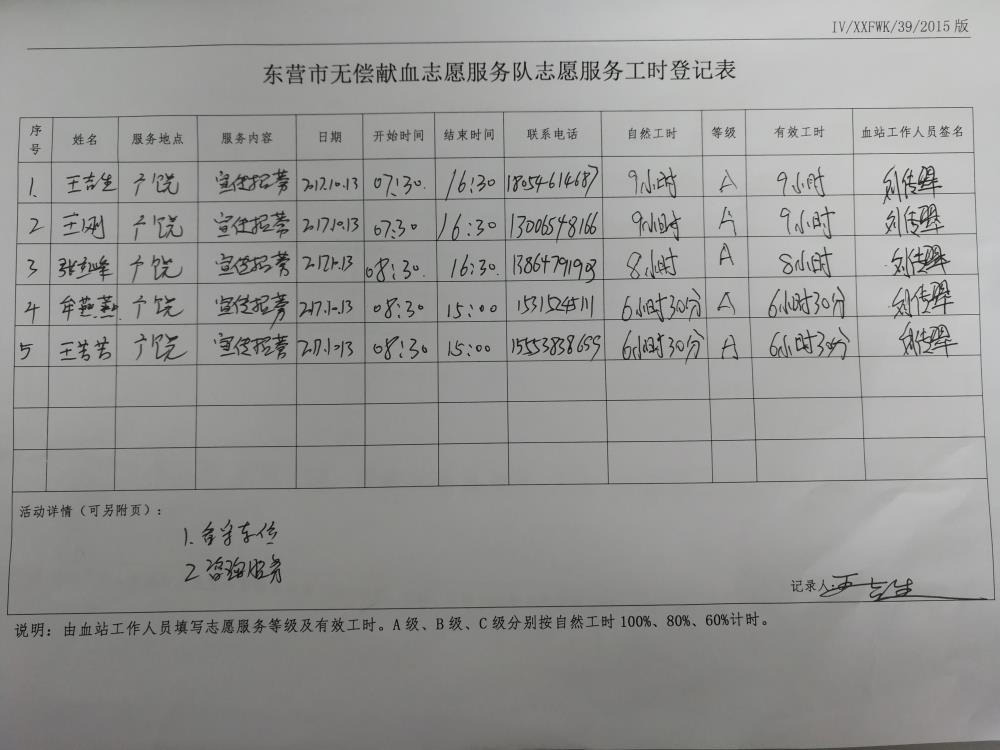 IV/XXFWK/39/2015 版
东营市无偿献血志愿服务队志愿服务工时登记表
序号 姓名 服务地点 服务内容 日期 开始时间 结束时间 联系电话 自然工时 等级 有效工时 血站工作人员签名
1. 王吉生 广饶 宣传招募 2017.10.13 07:30. 16:30 18054614687 9小时 A 9小时
2 王刚 广饶 宣传招募 2017.10.13 07:30 16:30 13006548166 9小时 A 9小时
3 广饶 宣传招募 08:30. 16:30. 13864791903 8小时 A 8小时
4 牟燕燕 广饶 宣传招募 2017.10.13 08:30 15:00 6小时30分 A 6小时30分
5 王苦苦 广饶 宣传招募 08:30 15:00 15553838699 6小时30分 A 6小时30分
活动详情（可另附页）：
1.
2 咨询服务
记录人: 王吉生
说明：由血站工作人员填写志愿服务等级及有效工时。A 级、B 级、C 级分别按自然工时 100%、80%、60%计时。